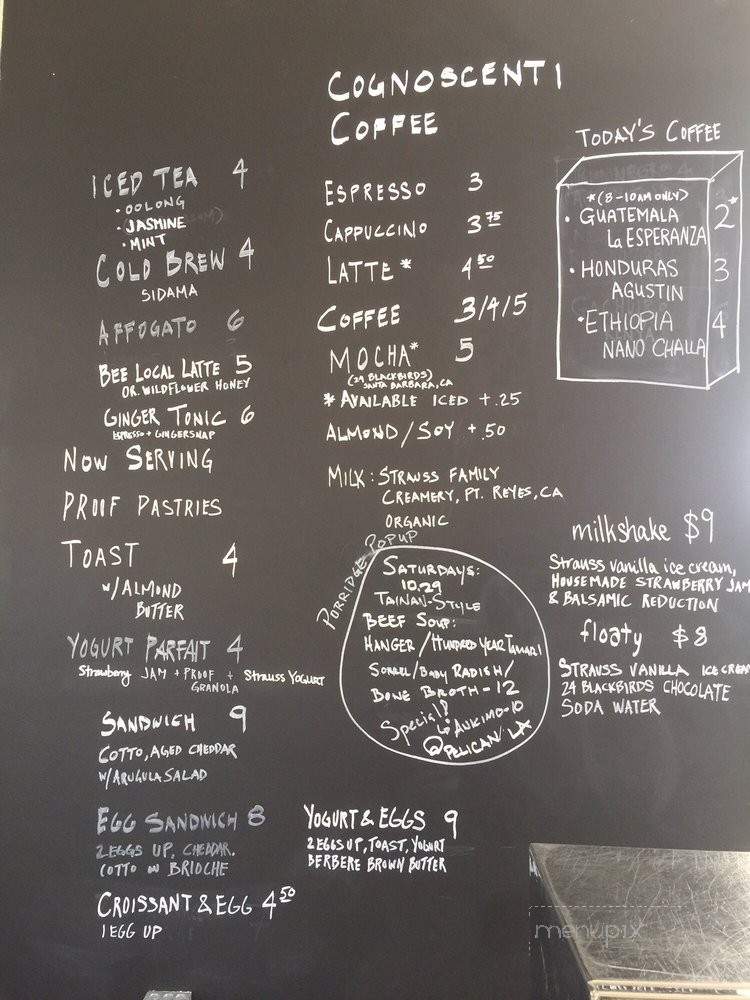 COGNOSCENTI
COFFEE
ICED TEA 4
• OOLONG
• JASMINE
• MINT
COLD BREW 4
SIDAMA
AFFOGATO 6
BEE LOCAL LATTE 5
OR. WILDFLOWER HONEY
GINGER TONIC 6
ESPRESSO + GINGERSNAP
NOW SERVING
PROOF PASTRIES
TOAST 4
W/ALMOND
BUTTER
YOGURT PARFAIT 4
Strawberry JAM + PROOF + STRAUSS YOGURT
GRANOLA
SANDWICH 9
COTTO, AGED CHEDDAR
W/ARUGULA SALAD
EGG SANDWICH 8
2 EGGS UP, CHEDDAR,
COTTO ON BRIOCHE
CROISSANT & EGG 4 50
1 EGG UP
ESPRESSO 3
CAPPUCCINO 3 75
LATTE* 4 50
COFFEE 3/4/5
MOCHA* 5
(24 BLACKBIRDS)
SANTA BARBARA, CA
* AVAILABLE ICED +.25
ALMOND/SOY +.50
MILK: STRAUSS FAMILY
CREAMERY, PT. REYES, CA
ORGANIC
PORRIDGE POPUP
SATURDAYS:
10.29
TAINAN-STYLE
BEEF SOUP:
HANGER/HUNDRED YEAR TAMARI
SORREL/BABY RADISH/
BONE BROTH-12
Special!
AUKIMO-10
@PELICAN/LA
YOGURT & EGGS 9
2 EGGS UP, TOAST, YOGURT
BERBERE BROWN BUTTER
TODAY'S COFFEE
*(8-10AM ONLY)
• GUATEMALA 2*
La ESPERANZA
• HONDURAS 3
AGUSTIN
• ETHIOPIA 4
NANO CHALLA
milkshake $9
Strauss vanilla ice cream,
HOUSEMADE STRAWBERRY JAM
& BALSAMIC REDUCTION
floaty $8
STRAUSS VANILLA ICE CREAM
24 BLACKBIRDS CHOCOLATE
SODA WATER
menupix